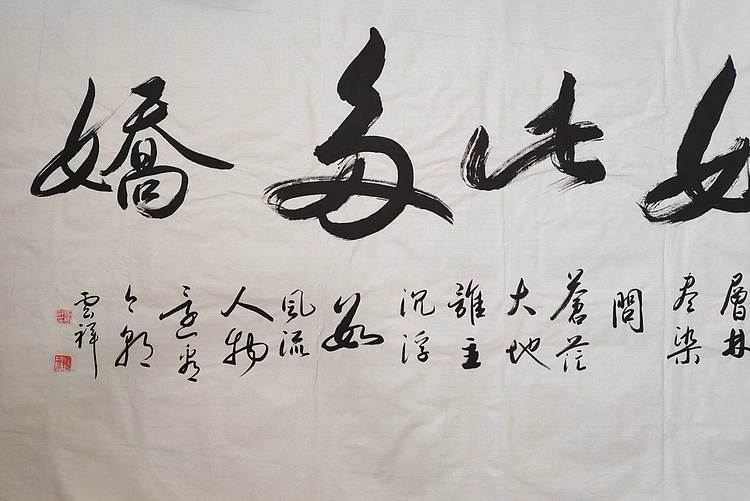 如此多嬌
層林
盡染
問
蒼茫
大地
誰主
沉浮
數
風流
人物
還看
今朝
雲祥